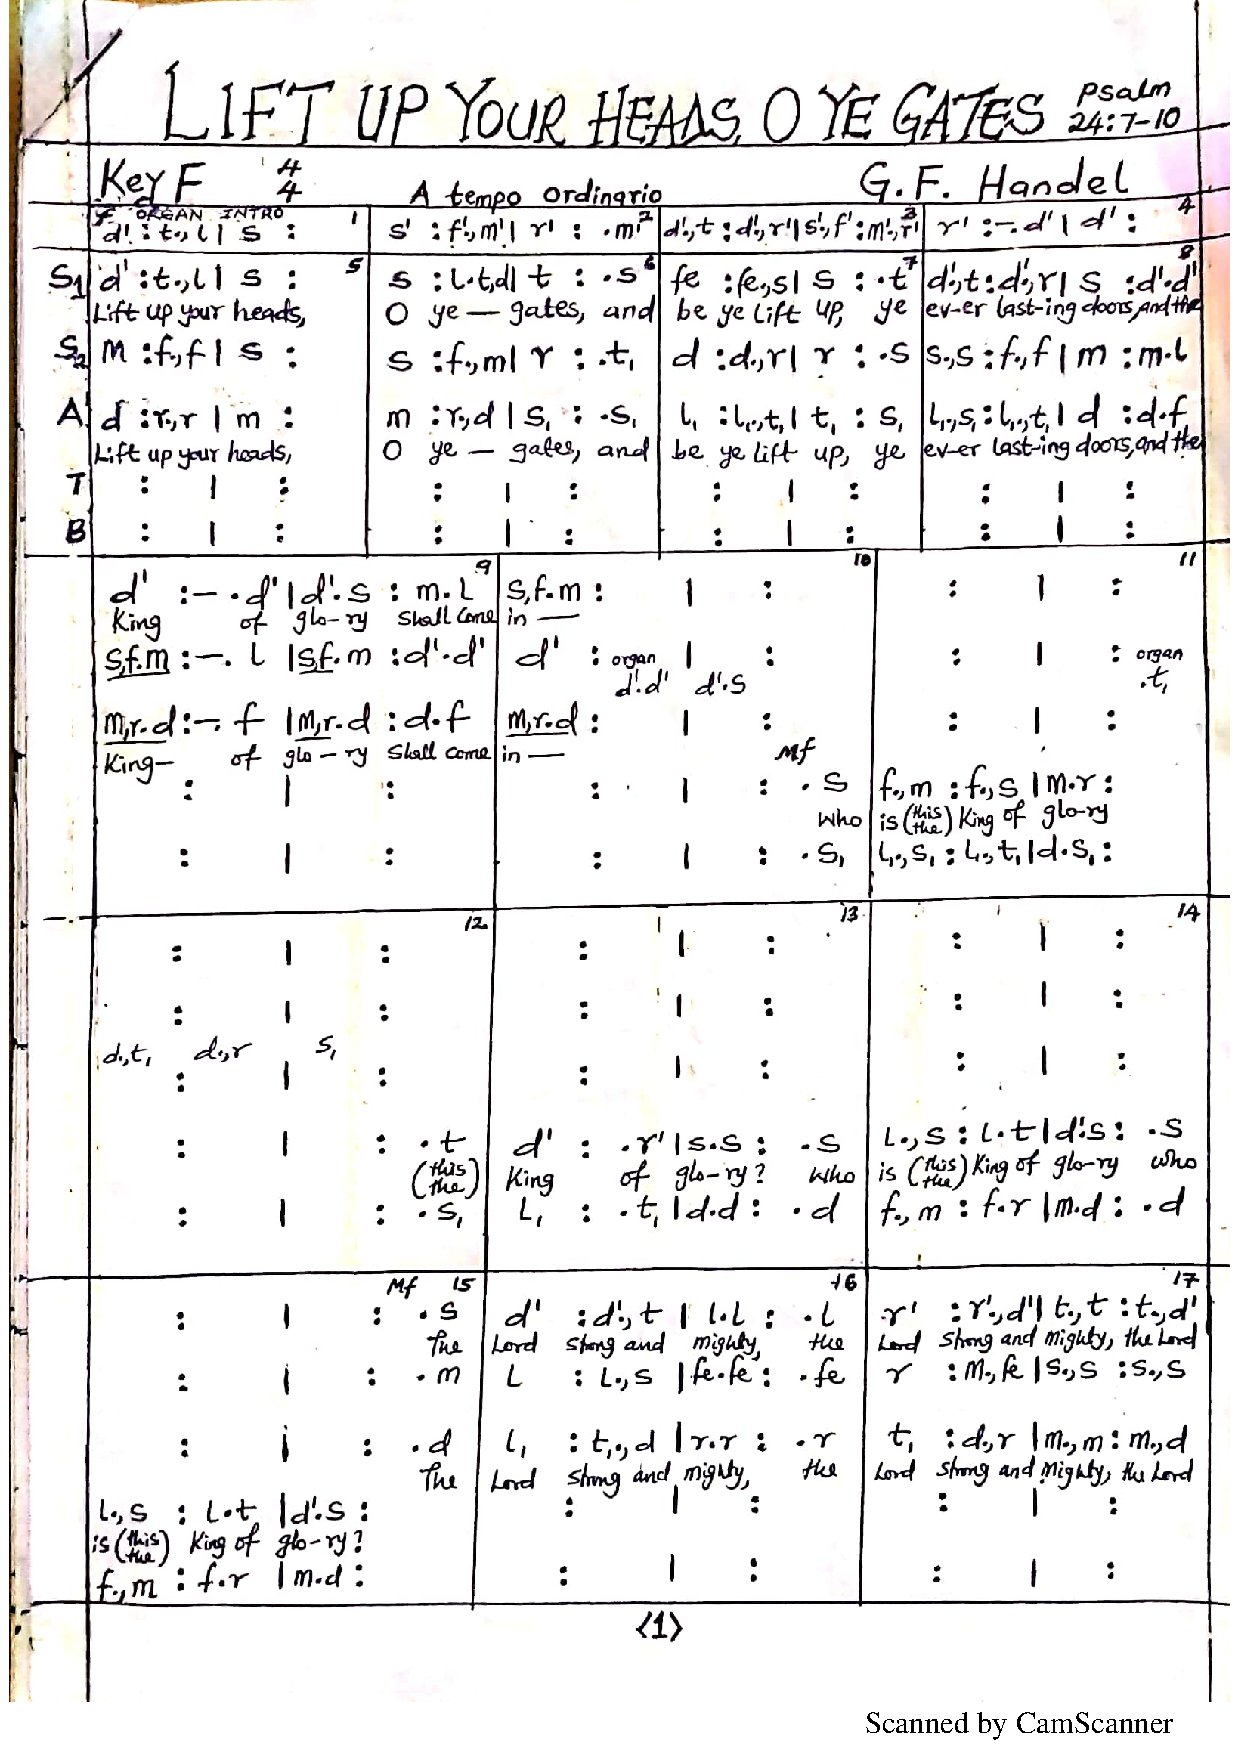 LIFT UP YOUR HEADS, O YE GATES Psalm 24:7-10
Key F 4/4 A tempo ordinario G.F. Handel
f ORGAN INTRO 1 2 3 4
d' : t.,l | s : s' : f'.,m' | r' : .m' d'.,t : d'.,r' | s'.,f' : m'.,r' r' :-. d' | d' :
5 6 7 8
S1 d' : t.,l | s : s : l.t,d | t : .s fe : fe.,s | s : .t d'.,t : d'.,r | s : d'.d'
Lift up your heads, O ye — gates, and be ye lift up, ye ev-er last-ing doors, and the
S2 m : f.,f | s : s : f.,m | r : .t, d : d.,r | r : .s s.,s : f.,f | m : m.l
A d : r.,r | m : m : r.,d | s, : .s, l, : l,.,t, | t, : s, l.,s, : l,.,t, | d : d.f
Lift up your heads, O ye — gates, and be ye lift up, ye ev-er last-ing doors, and the
T : | : : | : : | : : | :
B : | : : | : : | : : | :
9 10 11
d' :— .d' | d'.s : m.l s,f.m : | : : | :
King of glo-ry shall come in —
s,f.m :—. l | s,f.m : d'.d' d' : organ | : : | : organ
d'.d' d'.s .t,
m,r.d :—. f | m,r.d : d.f m,r.d : | : : | :
King— of glo-ry shall come in — Mf
: | : : | : .s f.,m : f.,s | m.r :
Who is (this the) King of glo-ry
: | : : | : .s, l.,s, : l.,t, | d.s, :
12 13 14
: | : : | : : | :
: | : : | : : | :
d.,t, d.,r s,
: | : : | : : | :
: | : .t d' : .r' | s.s : .s l.,s : l.t | d'.s : .s
(this the) King of glo-ry? Who is (this the) King of glo-ry Who
: | : .s, l, : .t, | d.d : .d f.,m : f.r | m.d : .d
Mf 15 16 17
: | : .s d' : d'.,t | l.l : .l r' : r'.,d' | t.,t : t.,d'
The Lord strong and mighty, the Lord strong and mighty, the Lord
: | : .m l : l.,s | fe.fe : .fe r : m.,fe | s.,s : s.,s
: | : .d l, : t,.,d | r.r : .r t, : d.,r | m.,m : m.,d
The Lord strong and mighty, the Lord strong and mighty, the Lord
l.,s : l.t | d'.s : : | : : | :
is (this the) King of glo-ry?
f.,m : f.r | m.d : : | : : | :
<1>
Scanned by CamScanner